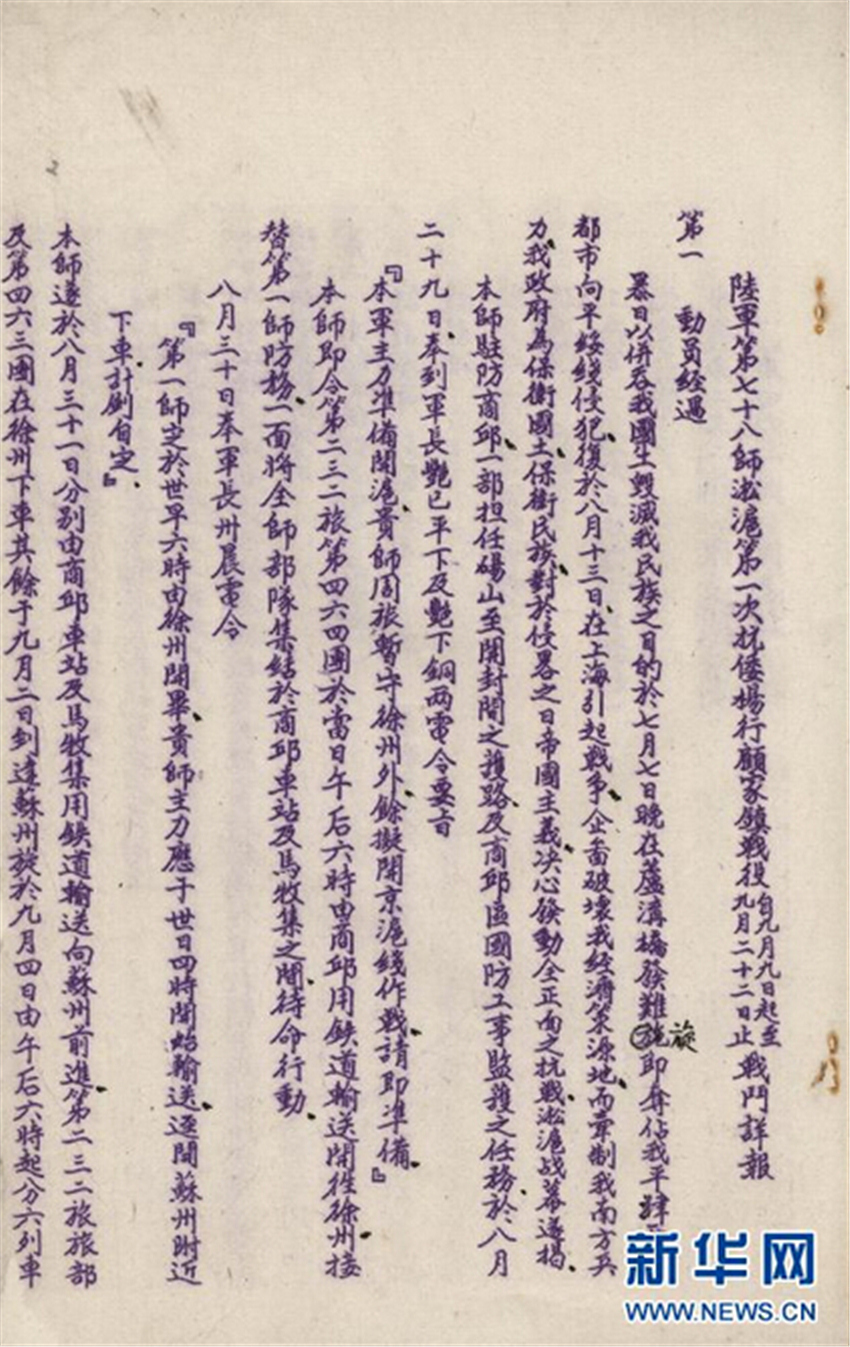 陸軍第七十八師淞滬第一次抗倭楊行顧家鎮戰役自九月九日起至九月二十二日止戰鬥詳報
第一 動員經過
暴日以併吞我國土毀滅我民族之目的於七月七日晚在蘆溝橋發難旋即奪佔我平肆
都市向平綏綫侵犯復於八月十三日在上海引起戰争企啚破壞我經濟策源地而牽制我南方兵
力我政府為保衛國土保衛民族對於侵畧之日帝國主義决心發動全正面之抗戰淞滬战幕遂揭
本師駐防商邱一部担任碭山至開封間之護路及商邱區國防工事監護之任務於八月
二十九日奉到軍長艷巳平下及艷下銅两電令要旨
『本軍主力準備開滬貴師周旅暫守徐州外餘擬開京滬綫作戰請即準備』
本師即令第二三二旅第四六四團於當日午后六時由商邱用鉄道輸送開徃徐州接
替第一師防務一面將全師部隊集結於商邱車站及馬牧集之間待命行動
八月三十日奉軍長卅晨電令
『第一師定於世早六時由徐州開畢貴師主力應于世日四時開始輸送逕開蘇州附近
下車計劃自定』
本師遂於八月三十一日分别由商邱車站及馬牧集用鉄道輸送向蘇州前進第二三二旅旅部
及第四六三團在徐州下車其餘于九月二日到達蘇州旋於九月四日由午后六時起分六列車
新华网
WWW.NEWS.CN